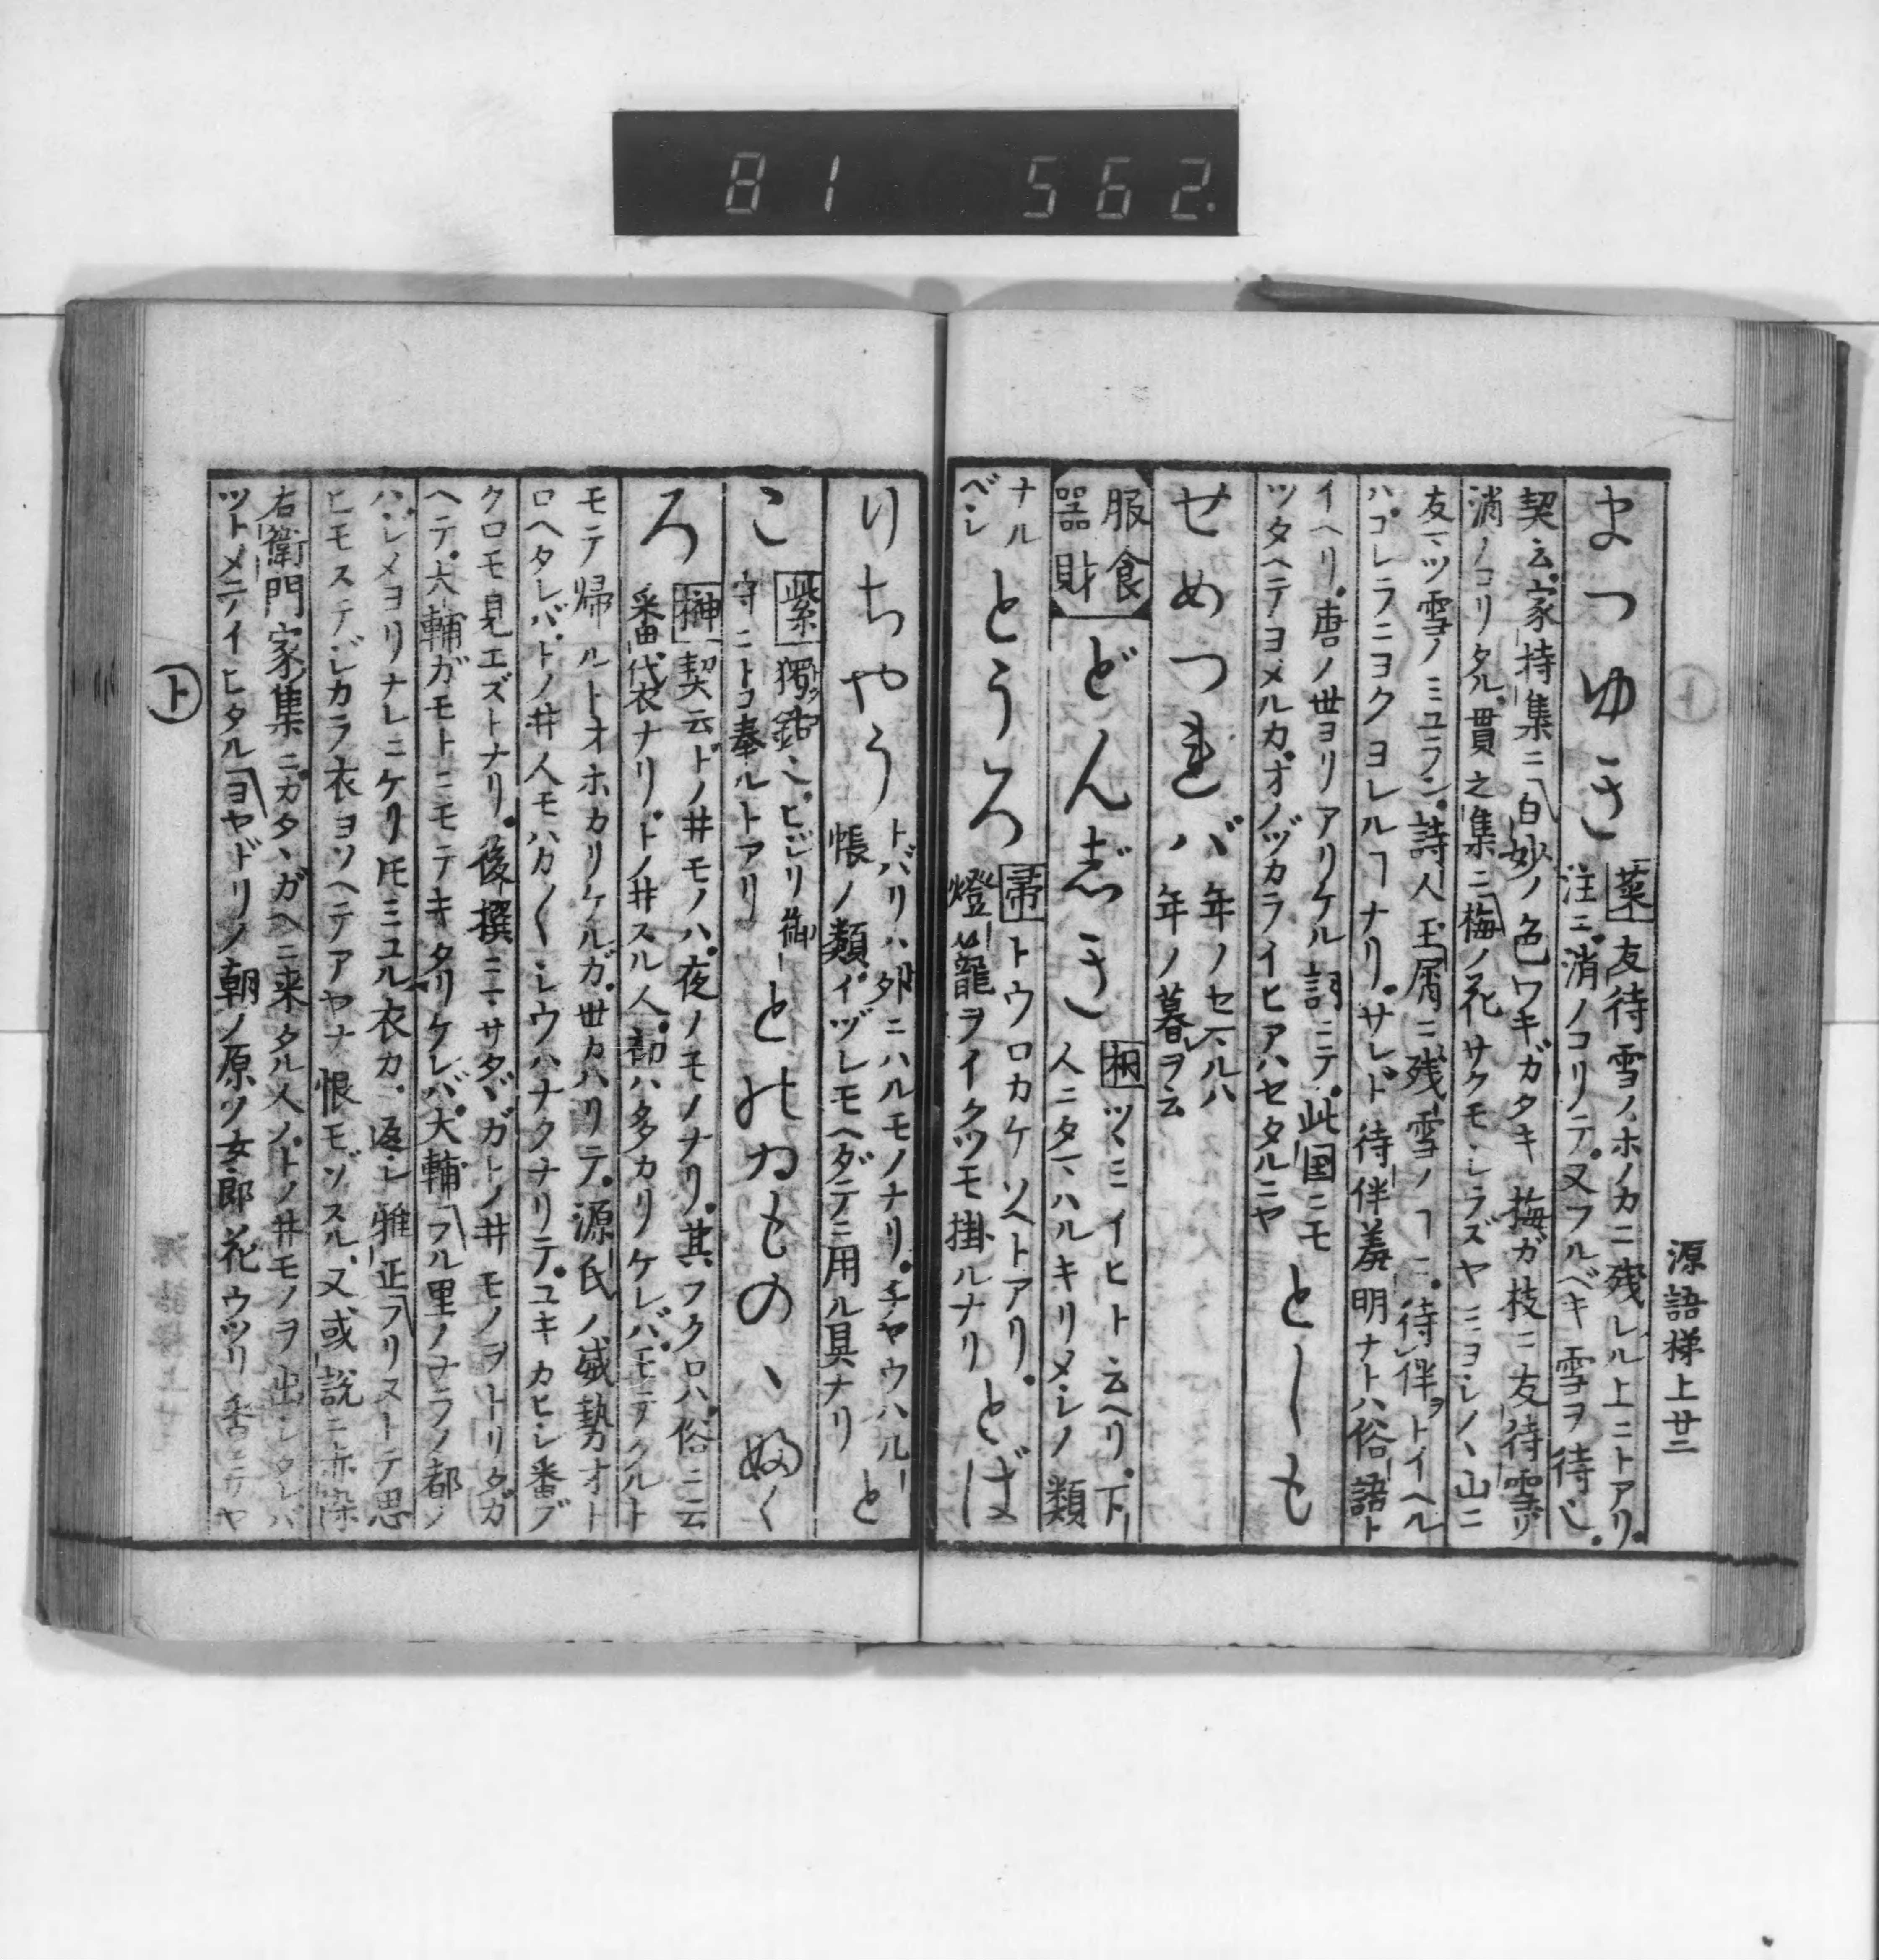 81 562.
源語梯上廿二
まつゆき
菜 友待雪ノホノカニ残レル上ニトアリ。
注ニ。消ノコリテ。又フルベキ雪ヲ待心。
契云。家持集ニ「白妙ノ色ワキガタキ梅ガ枝ニ友待雪ゾ
消ノコリタル。貫之集ニ「梅ノ花サクモシラズヤミヨシノヽ山ニ
友マツ雪ノミユラン。詩人玉屑ニ残雪ノヿニ。待伴ヲトイヘル
ハ。コレラニヨクヨレルヿナリ。サレド待伴羞明ナトハ俗語ト
イヘリ。唐ノ世ヨリアリケル詞ニテ。此国ニモ
ツタヘテヨメルカ。オノヅカライヒアハセタルニヤ
としも
せめつればバ
年ノセマルハ
年ノ暮ヲ云
服食
器財
どんじき
桐 ツヽミイヒト云ヘリ。下
人ニタマハルキリメシノ類
ナル
ベシ
とうろ
帚 トウロカケソヘトアリ。
燈籠ヲイクツモ掛ルナリ
とば
りちやう
トバリハ外ニハルモノナリ。チヤウハル
帳ノ類イヅレモヘダテニ用ル具ナリ
と
こ
紫 獨鈷也。ヒジリ御
守ニトコ奉ルトアリ
とのゐものゝふく
ろ
榊 契云トノ井モノハ。夜ノモノナリ。其フクロハ。俗ニ云
番代衣ナリ。トノ井スル人。初ハ多カリケレバ。モテクルト
モテ帰ルトオホカリケルガ。世カハリテ。源氏ノ威勢オト
ロヘタレバ。トノ井人モハカ〲シウハナクナリテ。ユキカヒシ番ブ
クロモ見エズトナリ。後撰ニ、サダヾガトノ井モノヲトリタガ
ヘテ。大輔ガモトニモテキタリケレバ。大輔「フル里ノナラノ都ノ
ハジメヨリナレニケリトモミユル衣カ。返シ雅正「フリヌトテ思
ヒモステジカラ衣ヨソヘテアヤナ恨モゾスル。又或説ニ赤染
右衛門家集ニ。カタヽガヘニ来タル人ノ。トノ井モノヲ出シタレバ
ツトメテイヒタル「ヨヤドリノ朝ノ原ツ女郎花ウツリ香ニテヤ
ト